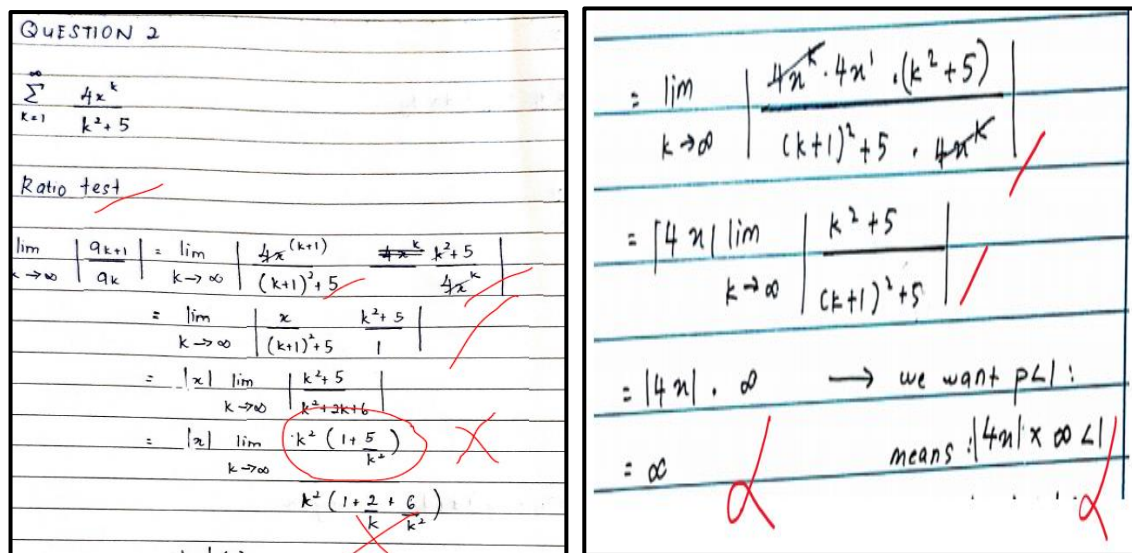 QUESTION 2
∞ Σ k=1 4x^k / k² + 5
Ratio test
lim k→∞ | a_{k+1} / a_k | = lim k→∞ | 4x^{(k+1)} / (k+1)² + 5 k² + 5 / 4x^k |
= lim k→∞ | x / (k+1)² + 5 k² + 5 / 1 |
= |x| lim k→∞ | k² + 5 / k² + 2k + 6 |
= |x| lim k→∞ k² (1 + 5/k²) / k² (1 + 2/k + 6/k²)
= lim k→∞ | 4x^k · 4x¹ · (k² + 5) / (k+1)² + 5 · 4x^k |
= |4x| lim k→∞ | k² + 5 / (k+1)² + 5 |
= |4x| . ∞ → we want p<1 :
= ∞ means : |4x| × ∞ < 1